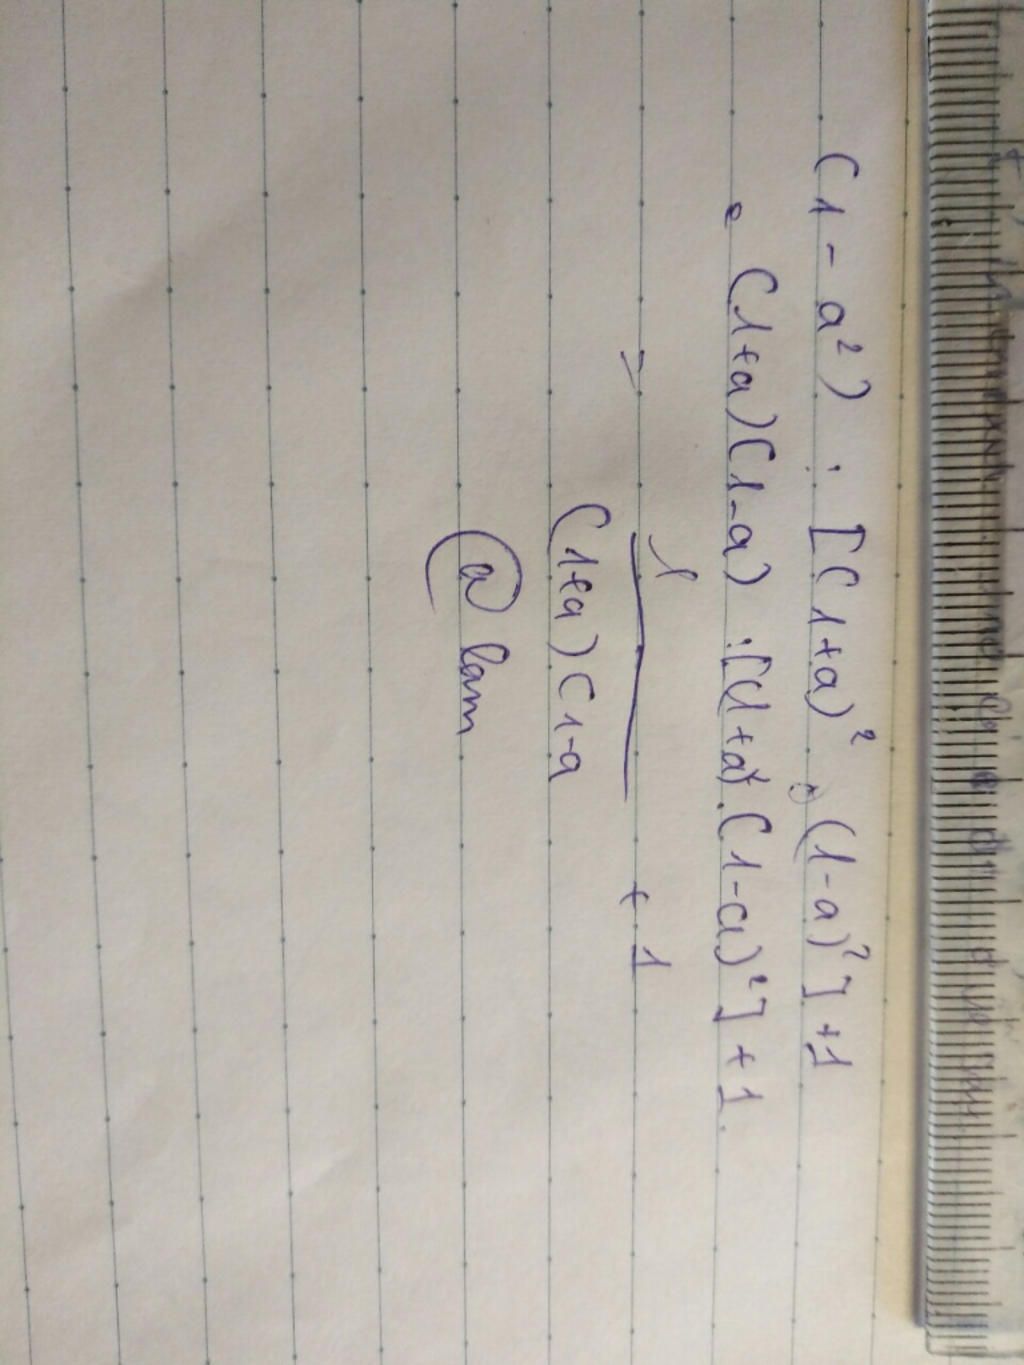 (1 - a²) : [(1+a)² . (1-a)²] +1
= (1+a)(1-a) : [(1+a)² . (1-a)²] + 1
= 1 + 1
(1+a)(1-a
@ lam